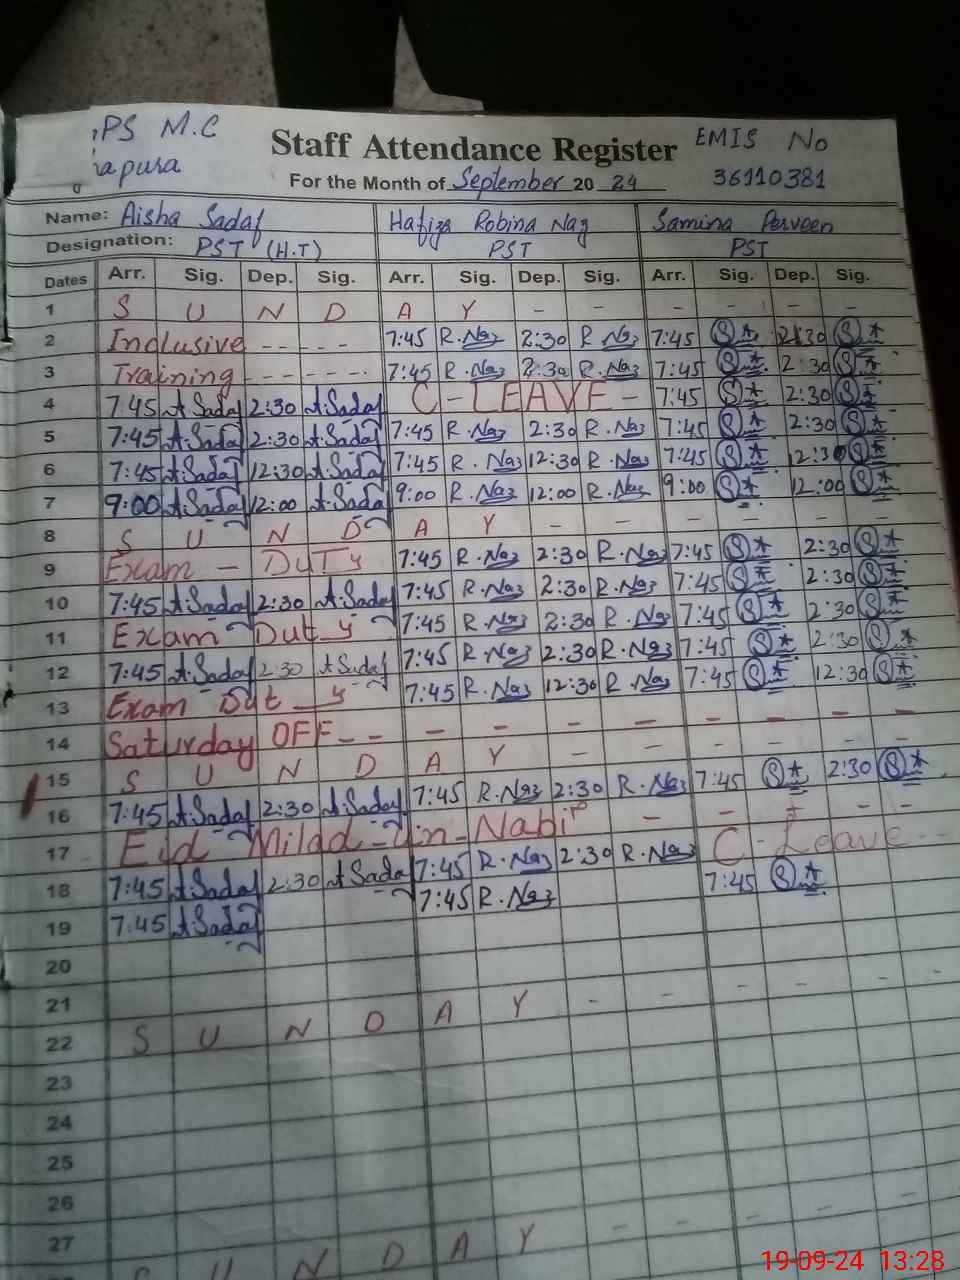 PS M.C
apusa
Staff Attendance Register
EMIS No
36110381
For the Month of September 20 24
Name: Aisha Sadaf Hafiza Robina Naz Samina Perveen
Designation: PST (H.T) PST PST
Dates Arr. Sig. Dep. Sig. Arr. Sig. Dep. Sig. Arr. Sig. Dep. Sig.
1 S U N D A Y - - - - - -
2 Inclusive - - - - 7:45 R.Naz 2:30 R Naz 7:45 2:30
3 Training - - - - - - 7:45 R.Naz 2:30 R.Naz 7:45 2:30
4 7:45 A.Sadaf 2:30 A.Sadaf C - LEAVE - 7:45 2:30
5 7:45 A.Sadaf 2:30 A.Sadaf 7:45 R.Naz 2:30 R.Naz 7:45 2:30
6 7:45 A.Sadaf 12:30 A.Sadaf 7:45 R.Naz 12:30 R.Naz 7:45 12:30
7 9:00 A.Sadaf 12:00 A.Sadaf 9:00 R.Naz 12:00 R.Naz 9:00 12:00
8 S U N D A Y - - - - - -
9 Exam - Duty 7:45 R.Naz 2:30 R.Naz 7:45 2:30
10 7:45 A.Sadaf 2:30 A.Sadaf 7:45 R.Naz 2:30 R.Naz 7:45 2:30
11 Exam Duty 7:45 R.Naz 2:30 R.Naz 7:45 2:30
12 7:45 A.Sadaf 2:30 A.Sadaf 7:45 R.Naz 2:30 R.Naz 7:45 2:30
13 Exam Duty 7:45 R.Naz 12:30 R.Naz 7:45 12:30
14 Saturday OFF - - - - - - - - - -
15 S U N D A Y - - - - - -
16 7:45 A.Sadaf 2:30 A.Sadaf 7:45 R.Naz 2:30 R.Naz 7:45 2:30
17 Eid Milad-un-Nabi - - - - - -
18 7:45 A.Sadaf 2:30 A.Sadaf 7:45 R.Naz 2:30 R.Naz C - Leave - -
19 7:45 A.Sadaf 7:45 R.Naz 7:45
20
21
22 S U N D A Y - - - - - -
23
24
25
26
27
S U N D A Y - - - - - -
19-09-24 13:28